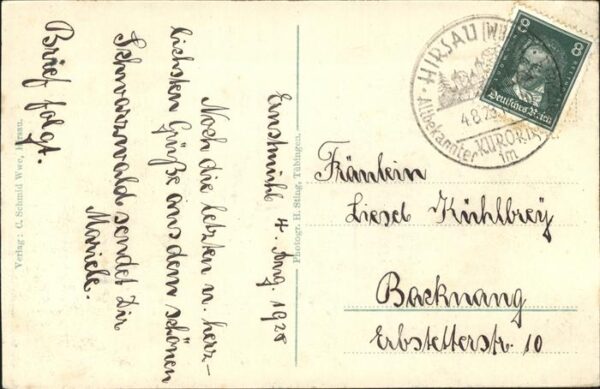 Ernstmühl 4. Aug. 1928
Noch die letzten u. herz-
lichsten Grüße aus dem schönen
Schwarzwald sendet Dir
Mariele.
Brief folgt.
Verlag: C. Schmid Wwe, Hirsau.
Photogr. H. Sting, Tübingen.
HIRSAU
4.8.28
Altbekannter KURORT
im
8 8
Deutsches Reich
Fräulein
Liesel Kühlbrey
Backnang
Erbstetterstr. 10